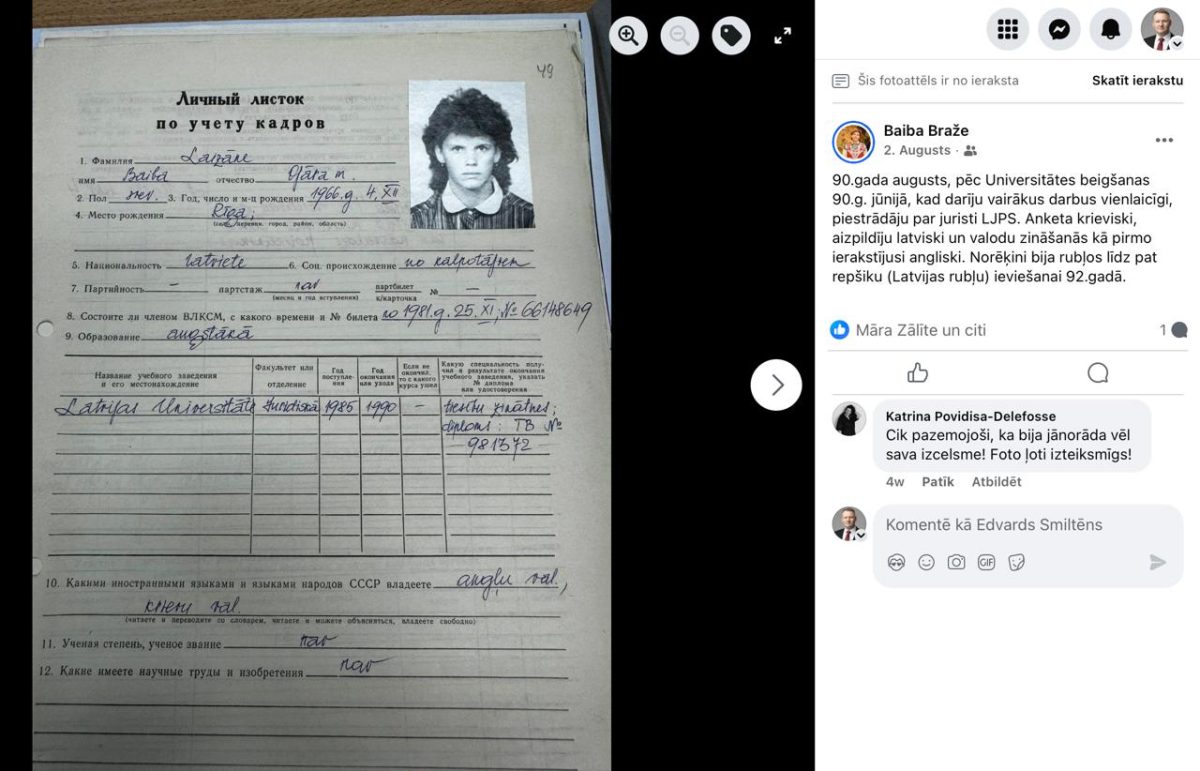 49
Личный листок
по учету кадров
1. Фамилия Lazāne
имя Baiba отчество Ojāra m.
2. Пол siev. 3. Год, число и м-ц рождения 1966.g. 4. XII
4. Место рождения Rīga;
(село, деревня, город, район, область)
5. Национальность latviete 6. Соц. происхождение no kalpotājiem
7. Партийность – партстаж nav партбилет № —
(месяц и год вступления) к/карточка
8. Состоите ли членом ВЛКСМ, с какого времени и № билета no 1981.g. 25. XI, № 66148649
9. Образование augstākā
Название учебного заведения и его местонахождение
Факультет или отделение
Год поступления
Год окончания или ухода
Если не окончил, то с какого курса ушел
Какую специальность получил в результате окончания учебного заведения, указать № диплома или удостоверения
Latvijas Universitāte Juridiskā 1985 1990 – tiesību zinātnes;
diploms: TB №
981372
10. Какими иностранными языками и языками народов СССР владеете angļu val.,
krievu val.
(читаете и переводите со словарем, читаете и можете объясняться, владеете свободно)
11. Ученая степень, ученое звание nav
12. Какие имеете научные труды и изобретения nav
Šis fotoattēls ir no ieraksta Skatīt ierakstu
Baiba Braže
2. Augusts ·
90.gada augusts, pēc Universitātes beigšanas
90.g. jūnijā, kad darīju vairākus darbus vienlaicīgi,
piestrādāju par juristi LJPS. Anketa krieviski,
aizpildīju latviski un valodu zināšanās kā pirmo
ierakstījusi angliski. Norēķini bija rubļos līdz pat
repšiku (Latvijas rubļu) ieviešanai 92.gadā.
Māra Zālīte un citi 1
Katrina Povidisa-Delefosse
Cik pazemojoši, ka bija jānorāda vēl
sava izcelsme! Foto ļoti izteiksmīgs!
4w Patīk Atbildēt
Komentē kā Edvards Smiltēns
GIF